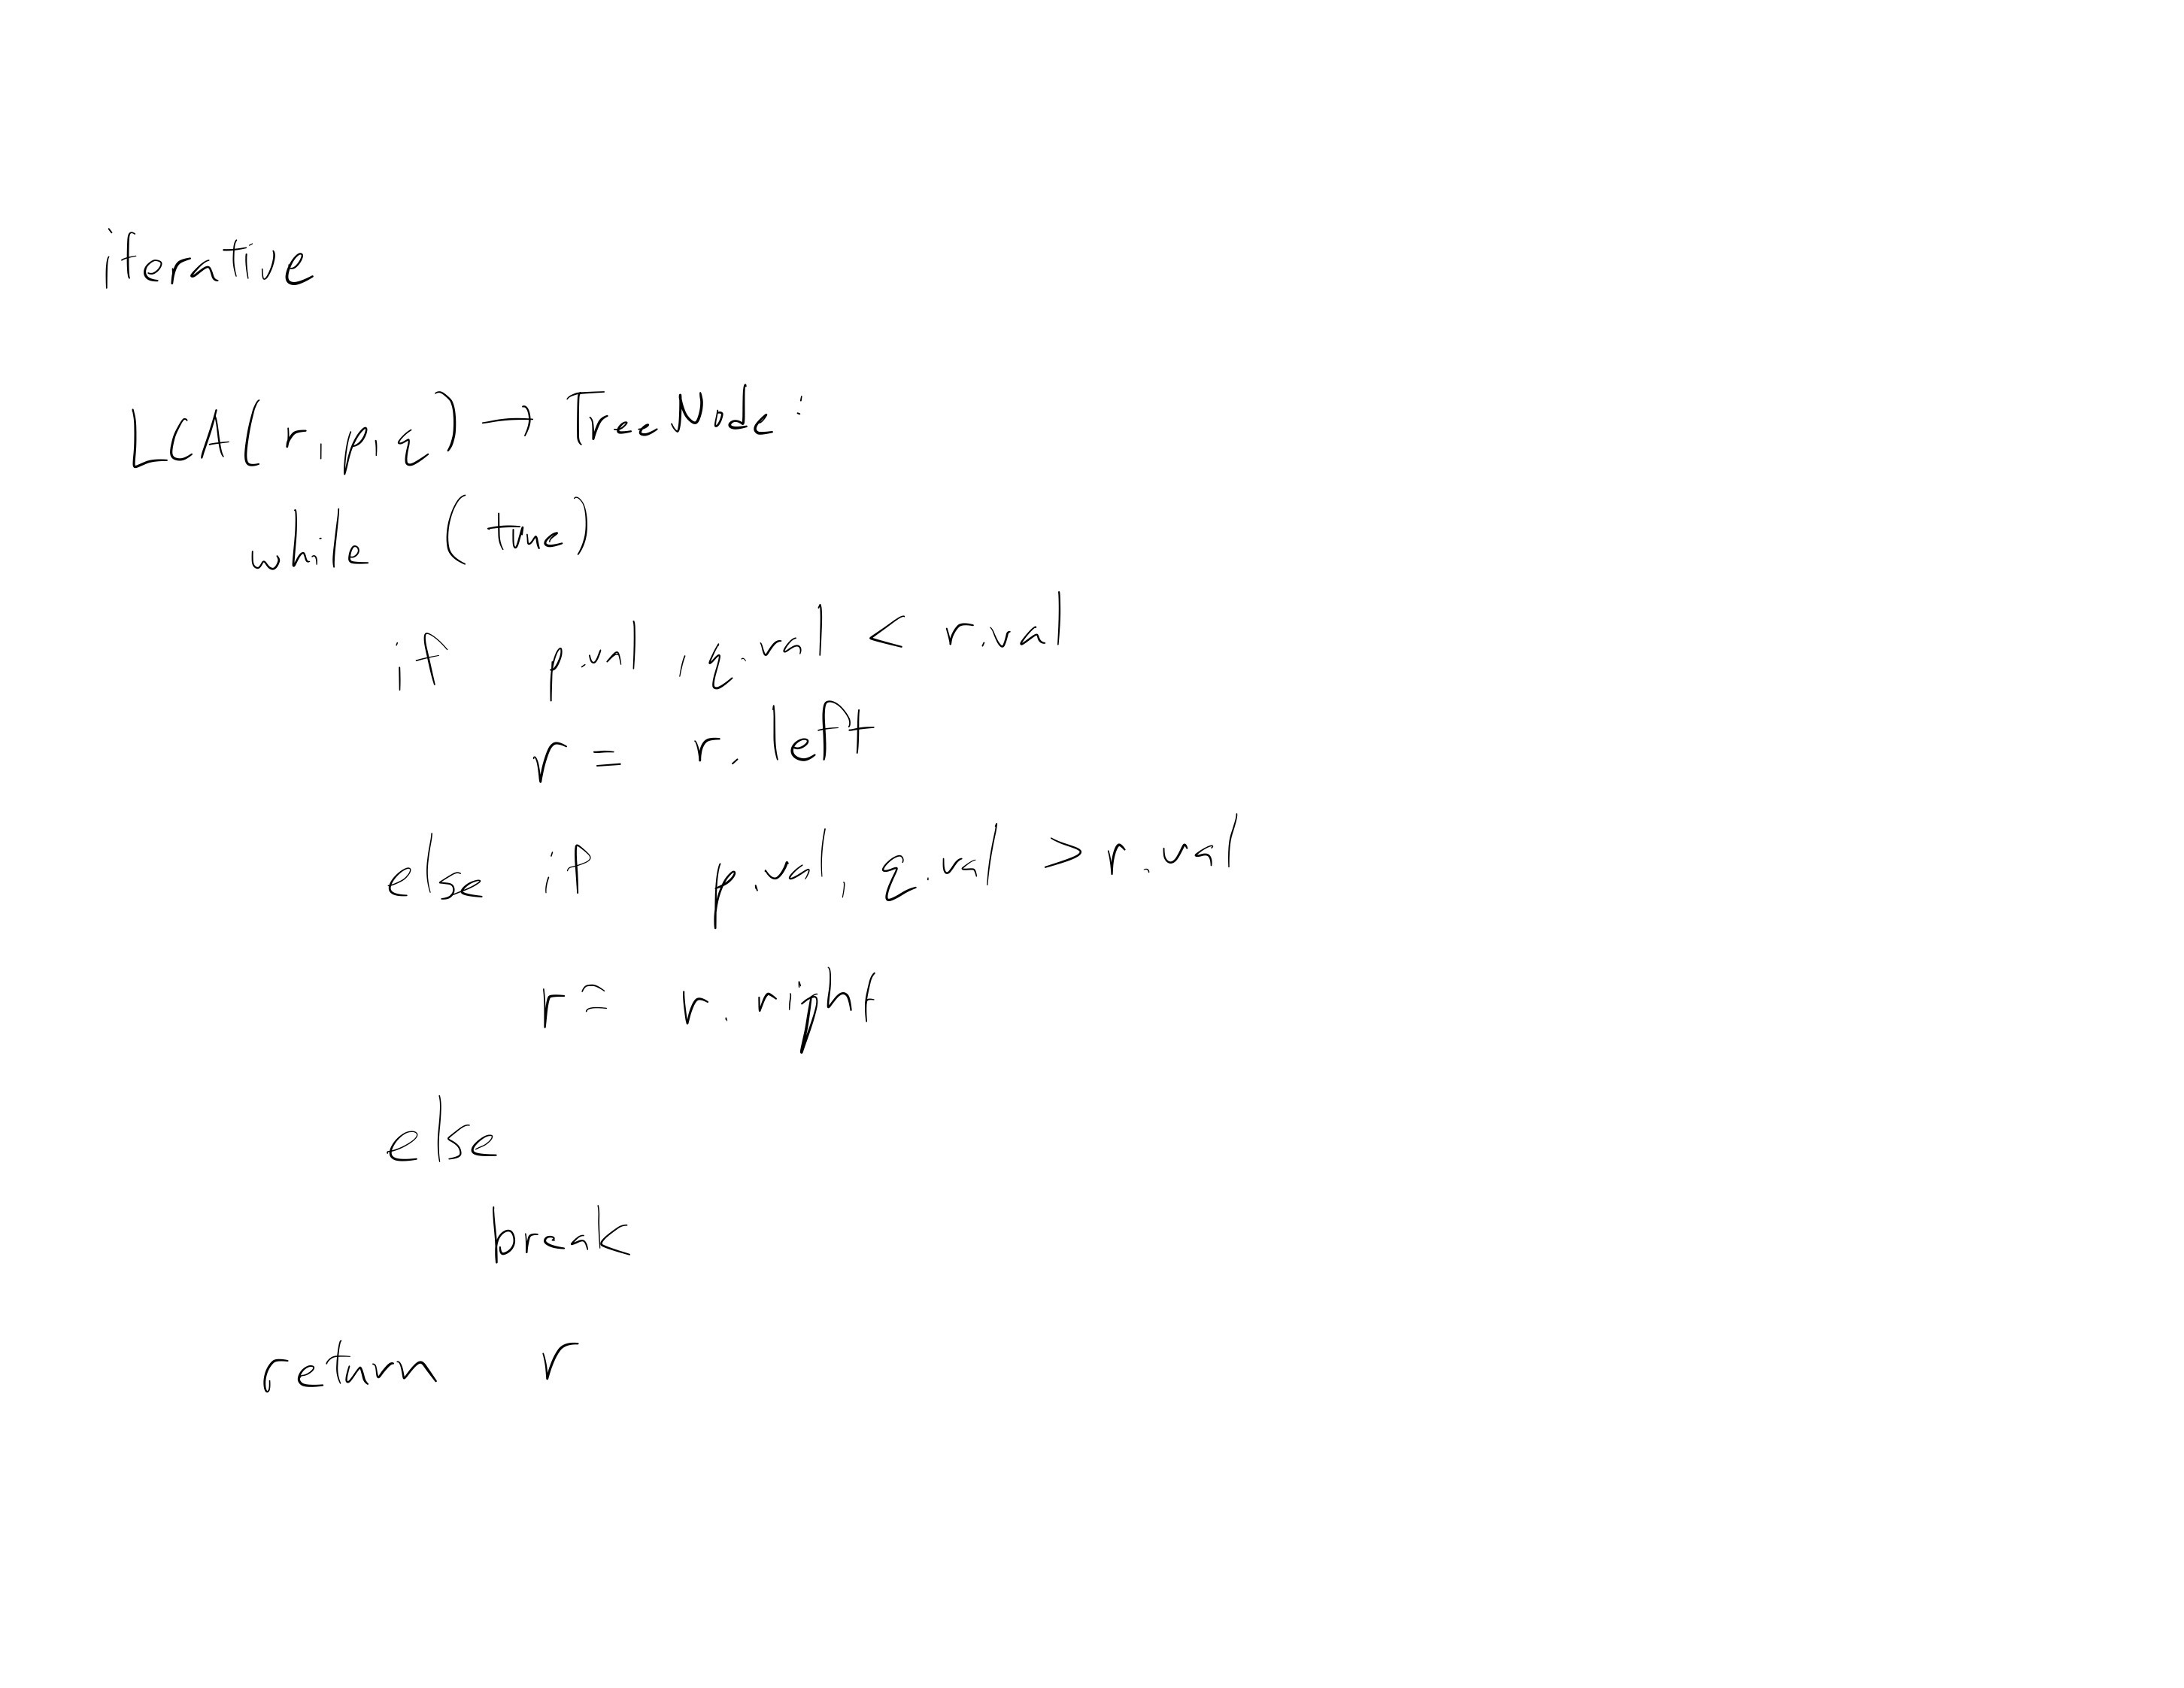 iterative
LCA(r, p, q) → TreeNode:
while (true)
if p.val, q.val < r.val
r = r.left
else if p.val, q.val > r.val
r = r.right
else
break
return r